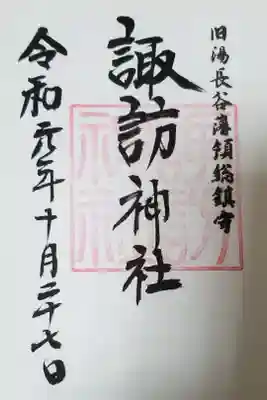 旧湯長谷藩領総鎮守
諏訪神社
令和元年十月二十七日